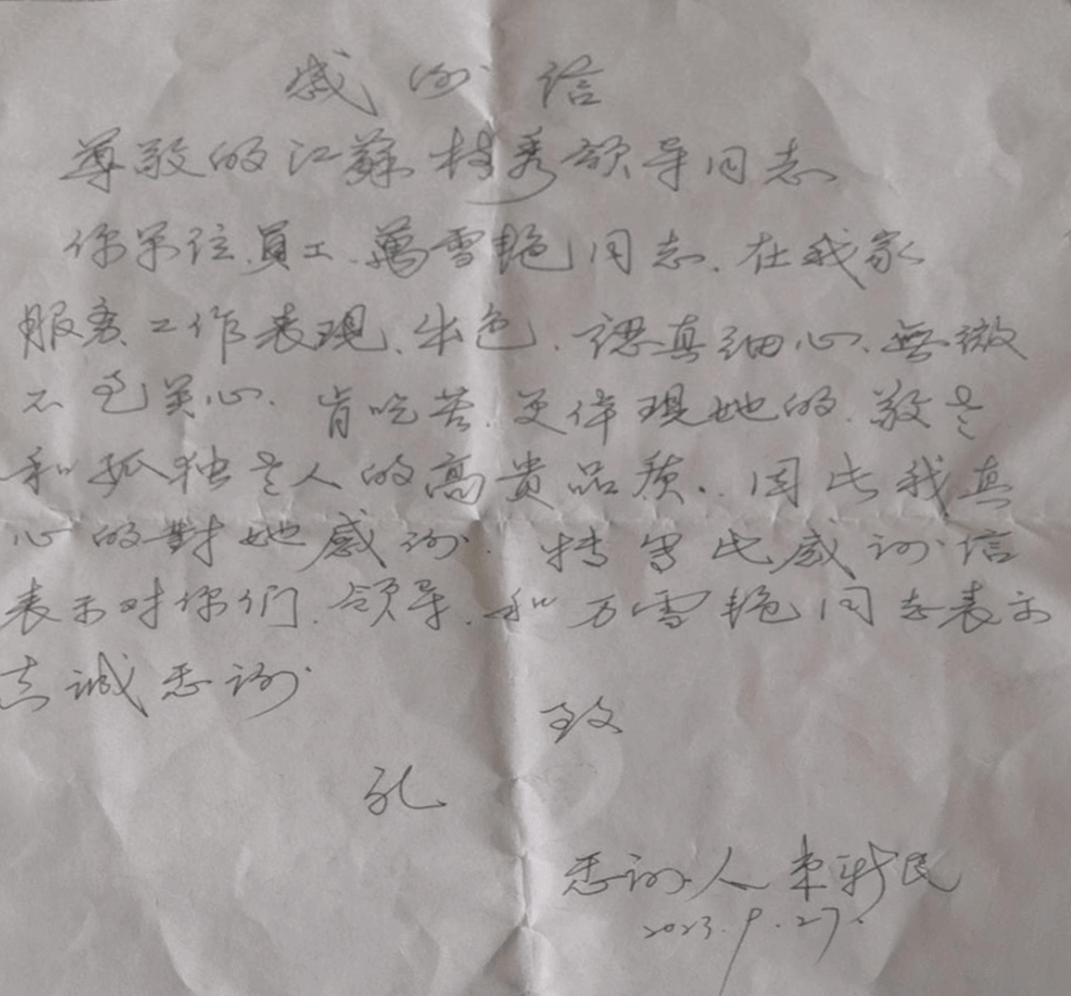 感谢信
尊敬的江蘇 秀领导同志
你单位.員工.萬雪艳同志.在我家
服务工作表现.出色.認真细心.無微
不至关心.肯吃苦.更体現她的.敬老
和孤独老人的高贵品质..因此我真
心的對她感谢.特写此感谢信
表示对你们.领导.和万雪艳同志表示
真诚 谢
致
礼
谢人 新民
2023.9.27.